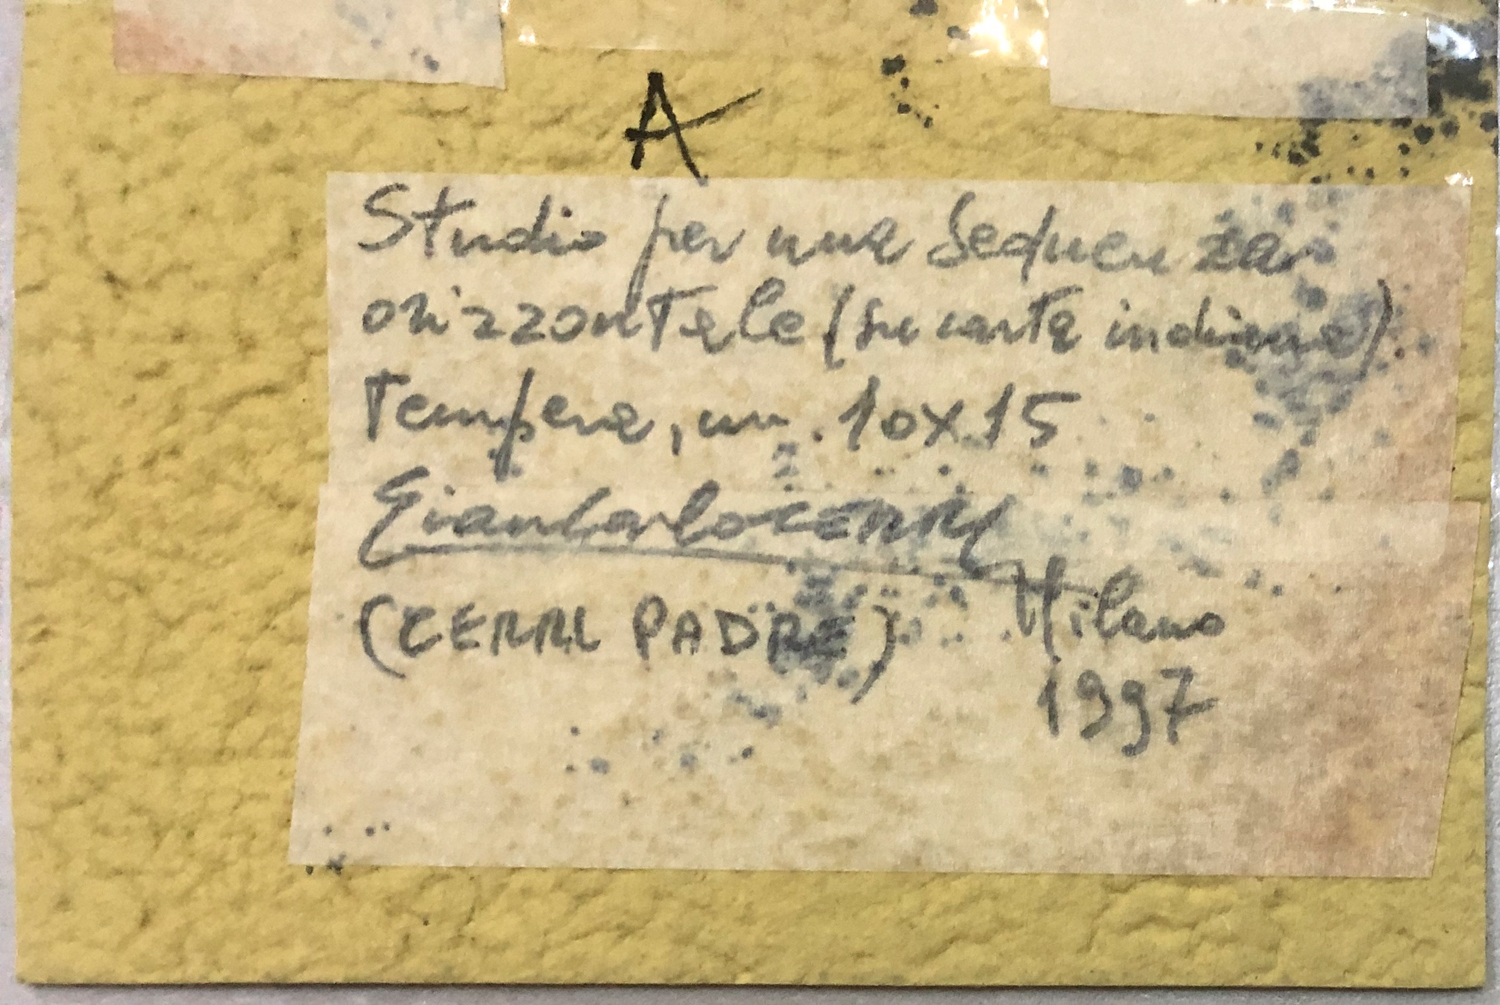 A
Studio per una sequenza
orizzontale (su carta indiana)
Tempera, cm. 10x15
Giancarlo CERRI
(CERRI PADRE)
Milano
1997